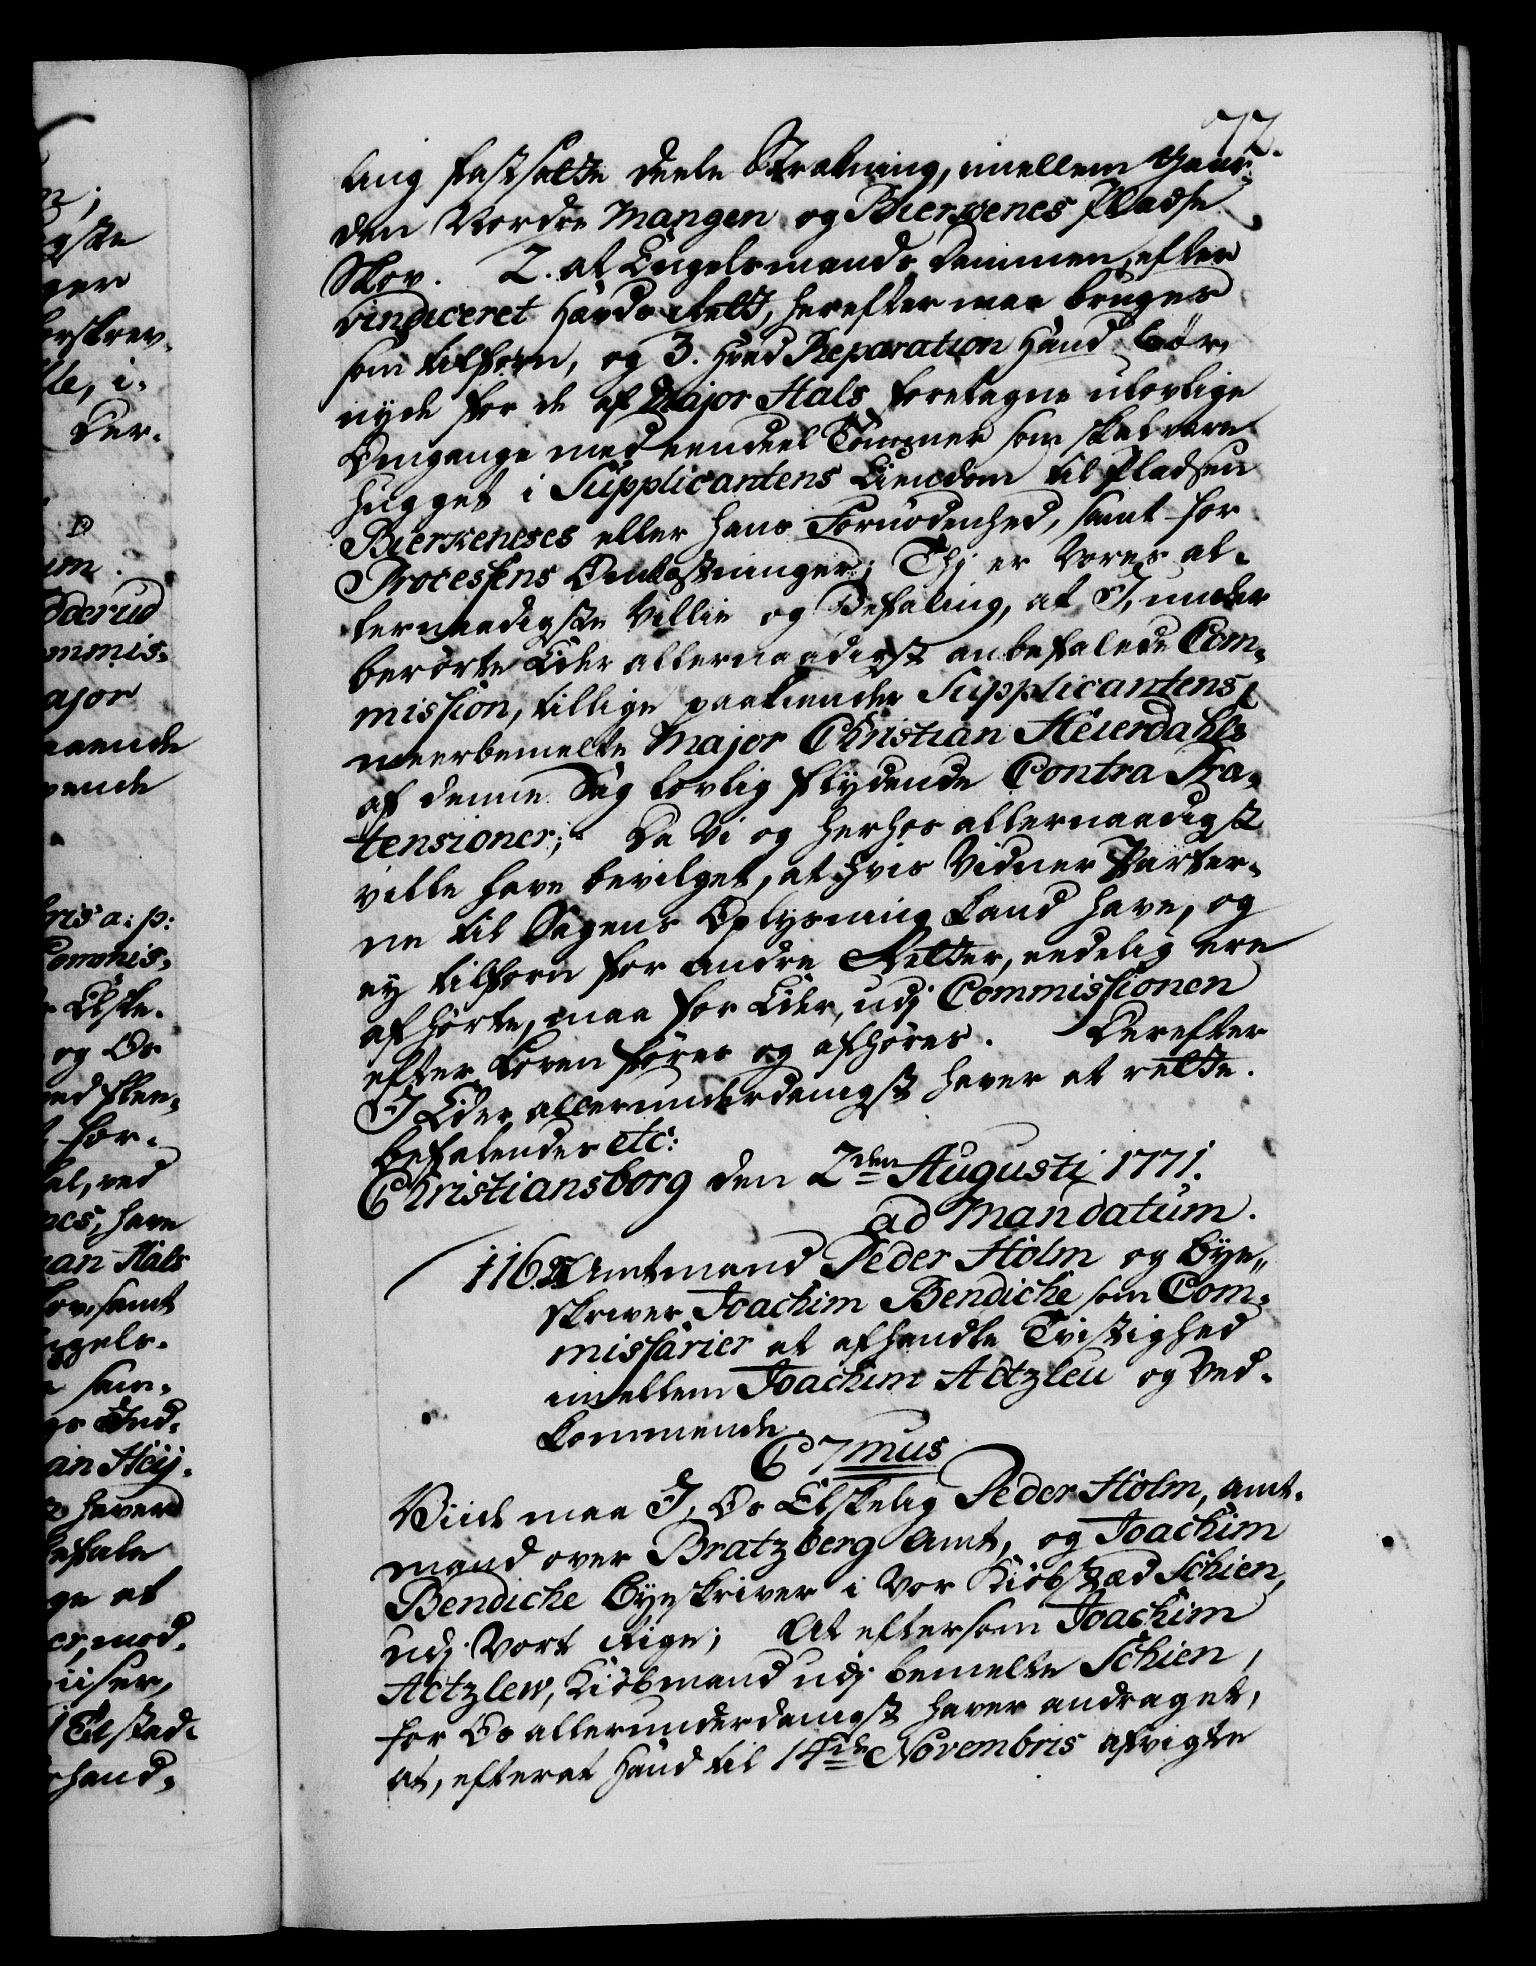 77.
lang fastsatte deele Strækning, imellem Gaar-
den Nordre Mangen og Bierkenes Pladse
Skov. 2. at Engelsmands Dammen, efter
vindiceret Hævds Rett, herefter maa bruges
som tilforn, og 3. Hvad Reparation Hand bør
nyde for de af Major Hals foretagne ulovlige
Omgange med eendeel Tømmer som skal være
hugget i Supplicantens Eiendom til Pladsen
Bierkeneses eller hans Fornødenhed, samt for
Processens Omkostninger; Thj er Vores al-
lernaadigste Villie og Befaling, at I, under
berørte Eder allernaadigst anbefalede Com-
mission, tillige paakiender Supplicantens,
meerbemelte Major Christian Heierdahls
af denne Sag lovlig flydende Contra Præ-
tensioner; Da Vi og herhos allernaadigst
ville have bevilget, at hvis Vidner Parter-
ne til Sagens Oplysning kand have, og
ey tilforn for andre Retter, endelig ere
afhørte, maa for Eder, udj Commissionen
efter Loven føres og afhøres. Derefter
I Eder allerunderdanigst haver at rette.
Befalendes etc:
Christiansborg den 2den Augusti 1771.
ad Mandatum.
116. Amtmand Peder Holm og Bye-
skriver Joachim Bendiche som Com-
missarier at afhandle Tvistighed
imellem Joachim Actzleu og Ved-
kommende.
C 7mus
Viide maa I, Os Elskelig Peder Holm, Amt-
mand over Bratzberg Amt, og Joachim
Bendiche Byeskriver i Vor Kiøbstæd Schien,
udj Vort Rige; At eftersom Joachim
Actzlew, Kiøbmand udj bemelte Schien,
for Os allerunderdanigst haver andraget,
at, efterat Hand til 14de Novembris afvigte